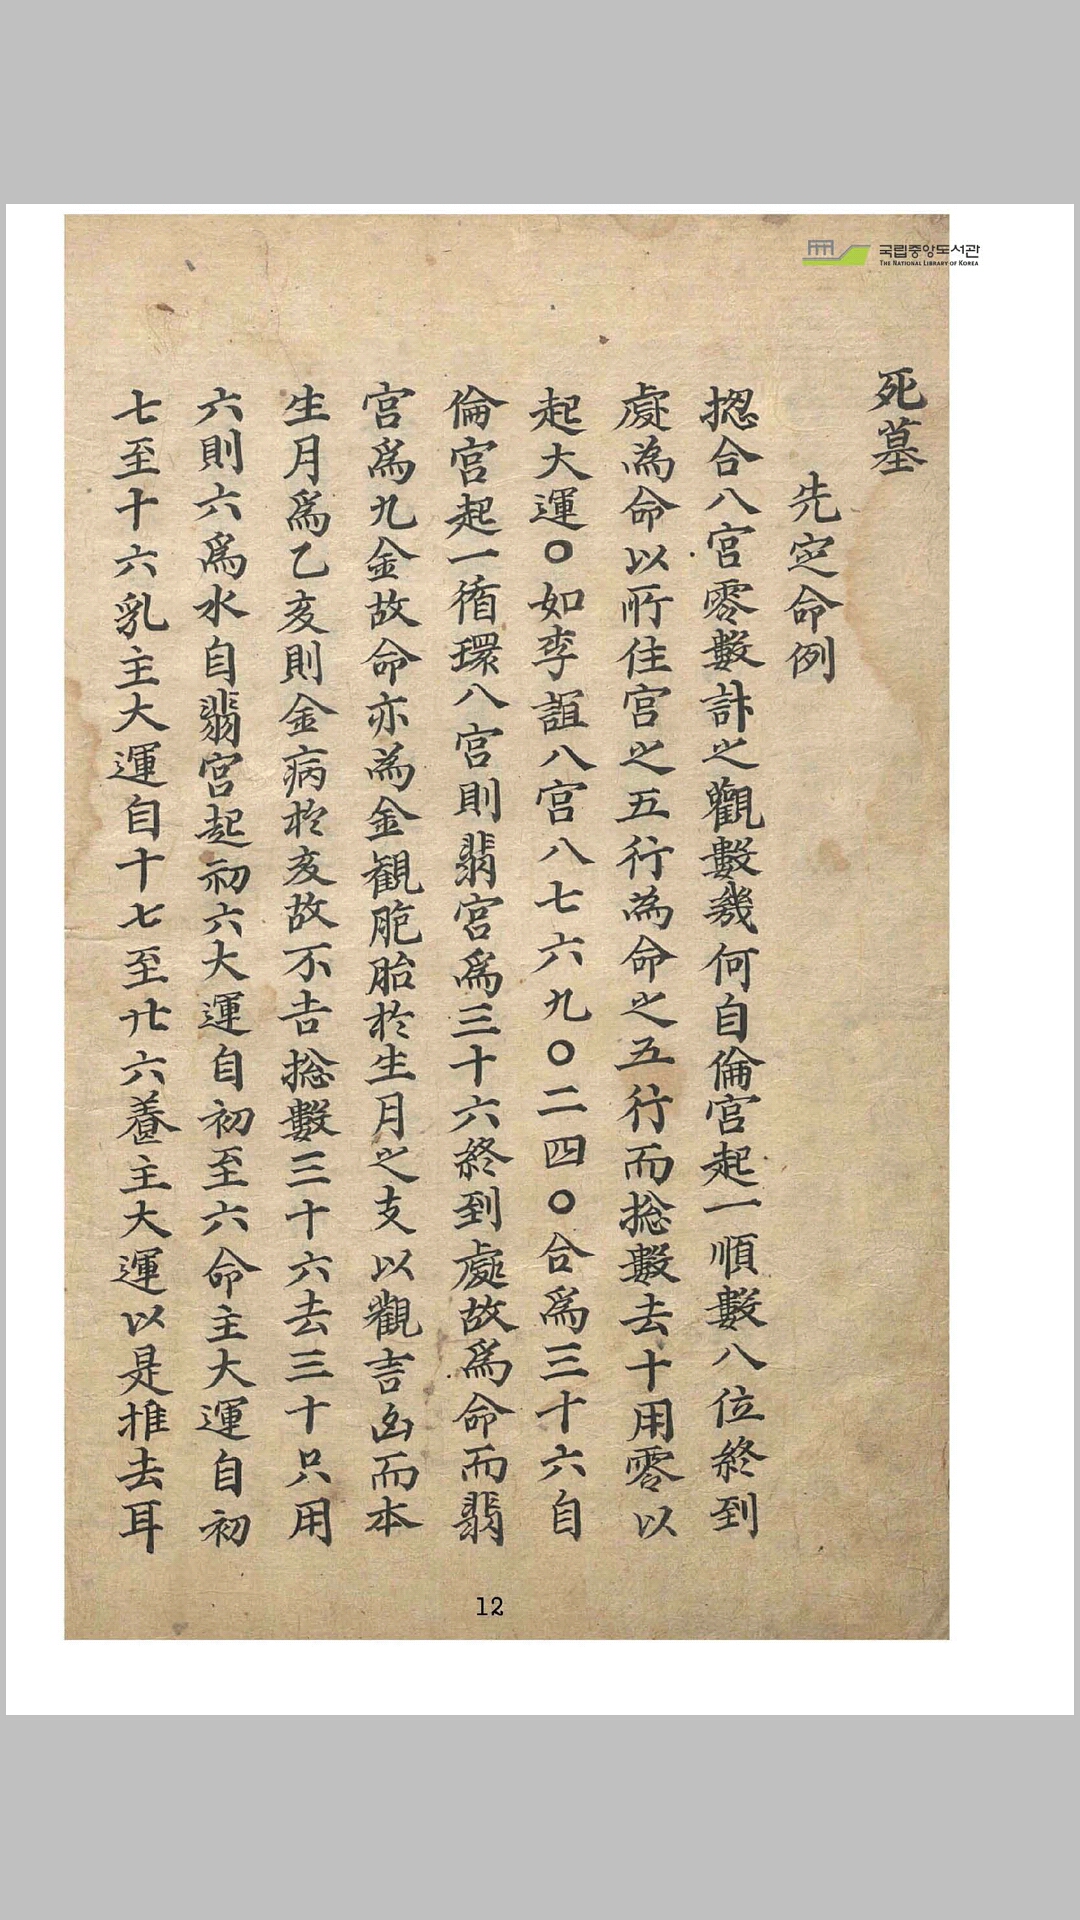 국립중앙도서관
THE NATIONAL LIBRARY OF KOREA
死墓
先定命例
揔合八宮零數計之觀數幾何自倫宮起一順數八位終到
處為命以所住宮之五行為命之五行而捴數去十用零以
起大運〇如李誼八宮八七六九〇二四〇合爲三十六自
倫宮起一循環八宮則翡宮爲三十六終到處故爲命而翡
宮爲九金故命亦為金観胞胎於生月之支以觀吉凶而本
生月爲乙亥則金病於亥故不吉捴數三十六去三十只用
六則六爲水自翡宮起初六大運自初至六命主大運自初
七至十六乳主大運自十七至卄六養主大運以是推去耳
12